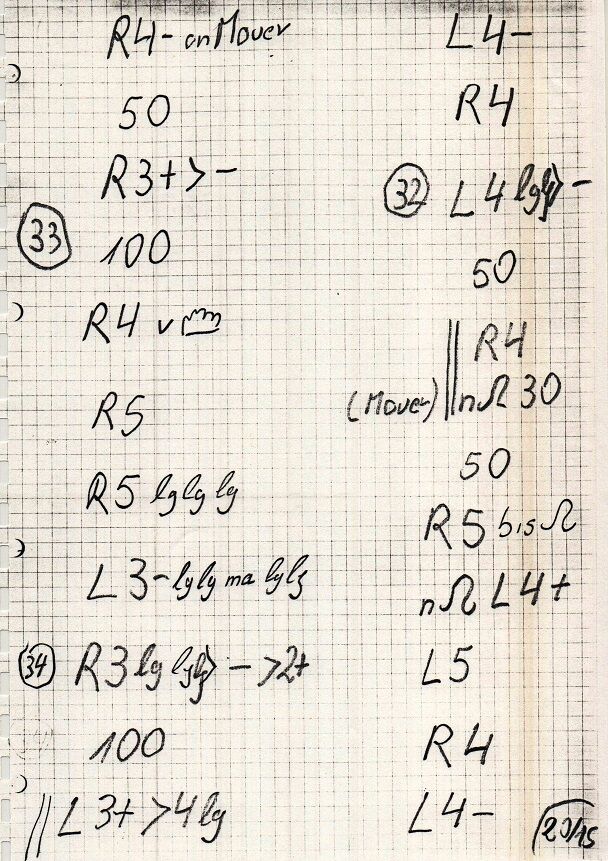 R4- an Mauer
50
R3+>-
33
100
R4 v
R5
R5 lg lg lg
L3- lg lg ma lg lg
34
R3 lg lg lg > - >2+
100
L 3+ >4 lg
L4-
R4
32
L4 lg lg > -
50
R4
(Mauer) nΩ 30
50
R5 bis Ω
nΩ L4+
L5
R4
L4-
20/15